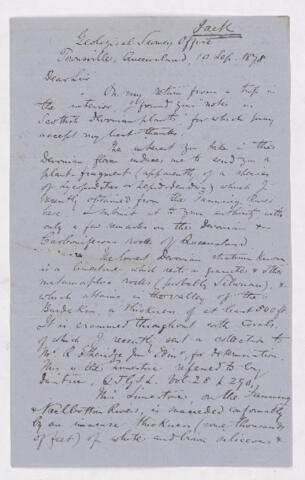 Jack
Geological Survey Office
Townsville, Queensland, 10 Sep. 1878
Dear Sir
On my return from a trip in
the interior I found your notes on
Scottish Devonian plants for which pray
accept my best thanks.
The interest you take in the
Devonian flora induces me to send you a
plant-fragment (apparently of a species
of Lycopodites or Lepidodendron) which I
recently obtained from the Fanning River
here & submit it to your authority with
only a few remarks on the Devonian &
Carboniferous rocks of Queensland.
The lowest Devonian stratum known
is a limestone which rests on granite & other
metamorphic rocks (probably Silurian), &
which attains, in the valley of the
Burdekin, a thickness of at least 800 ft.
It is crammed throughout with Corals,
of which I recently sent a collection to
Mr R. Etheridge Junr Edinr. for determination.
This is the limestone referred to by
Daintree, Q.J.G.S.L. Vol. 28 p
This limestone, on the Fanning
& Keelbottom Rivers, is succeeded conformably
by an immense thickness (some thousands
of feet) of white and brown siliceous &